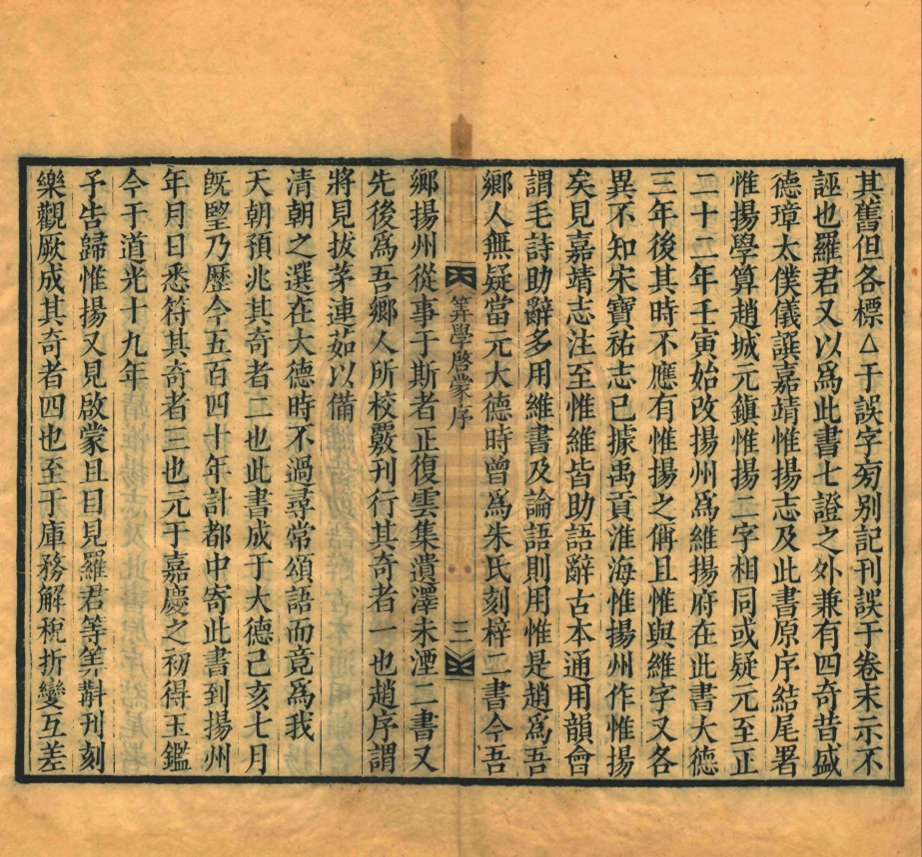 其舊但各標△于誤字旁別記刊誤于卷末示不
誣也羅君又以爲此書七證之外兼有四奇昔盛
德璋太僕儀譔嘉靖惟揚志及此書原序結尾署
惟揚學算趙城元鎮惟揚二字相同或疑元至正
二十二年壬寅始改揚州爲維揚府在此書大德
三年後其時不應有惟揚之偁且惟與維字又各
異不知宋寶祐志已據禹貢淮海惟揚州作惟揚
矣見嘉靖志注至惟維皆助語辭古本通用韻會
謂毛詩助辭多用維書及論語則用惟是趙爲吾
鄉人無疑當元大德時曾爲朱氏刻梓二書今吾
筭學啓蒙序
三
鄉揚州從事于斯者正復雲集遺澤未湮二書又
先後爲吾鄉人所校覈刊行其奇者一也趙序謂
將見拔茅連茹以備
清朝之選在大德時不過尋常頌語而竟爲我
天朝預兆其奇者二也此書成于大德己亥七月
旣朢乃歷今五百四十年計都中寄此書到揚州
年月日悉符其奇者三也元于嘉慶之初得玉鑑
今于道光十九年
予告歸惟揚又見啟蒙且目見羅君等筭斠刊刻
樂觀厥成其奇者四也至于庫務解稅折變互差